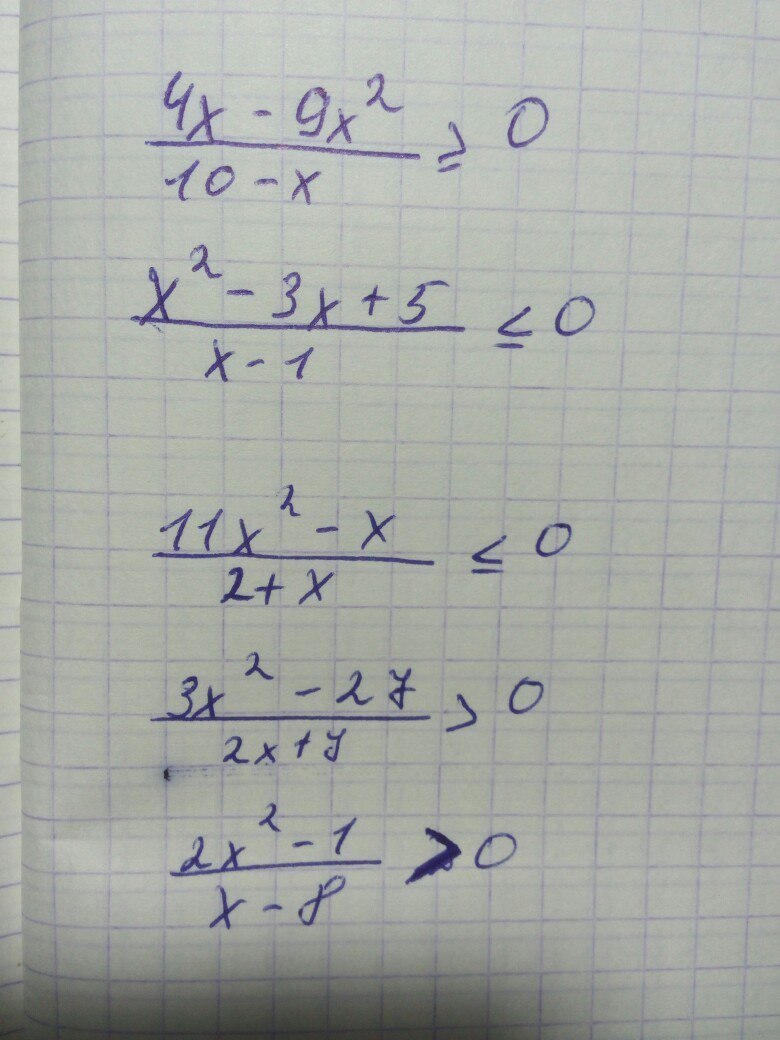 (4x - 9x²)/(10 - x) ≥ 0
(x² - 3x + 5)/(x - 1) ≤ 0
(11x² - x)/(2 + x) ≤ 0
(3x² - 27)/(2x + 7) > 0
(2x² - 1)/(x - 8) > 0